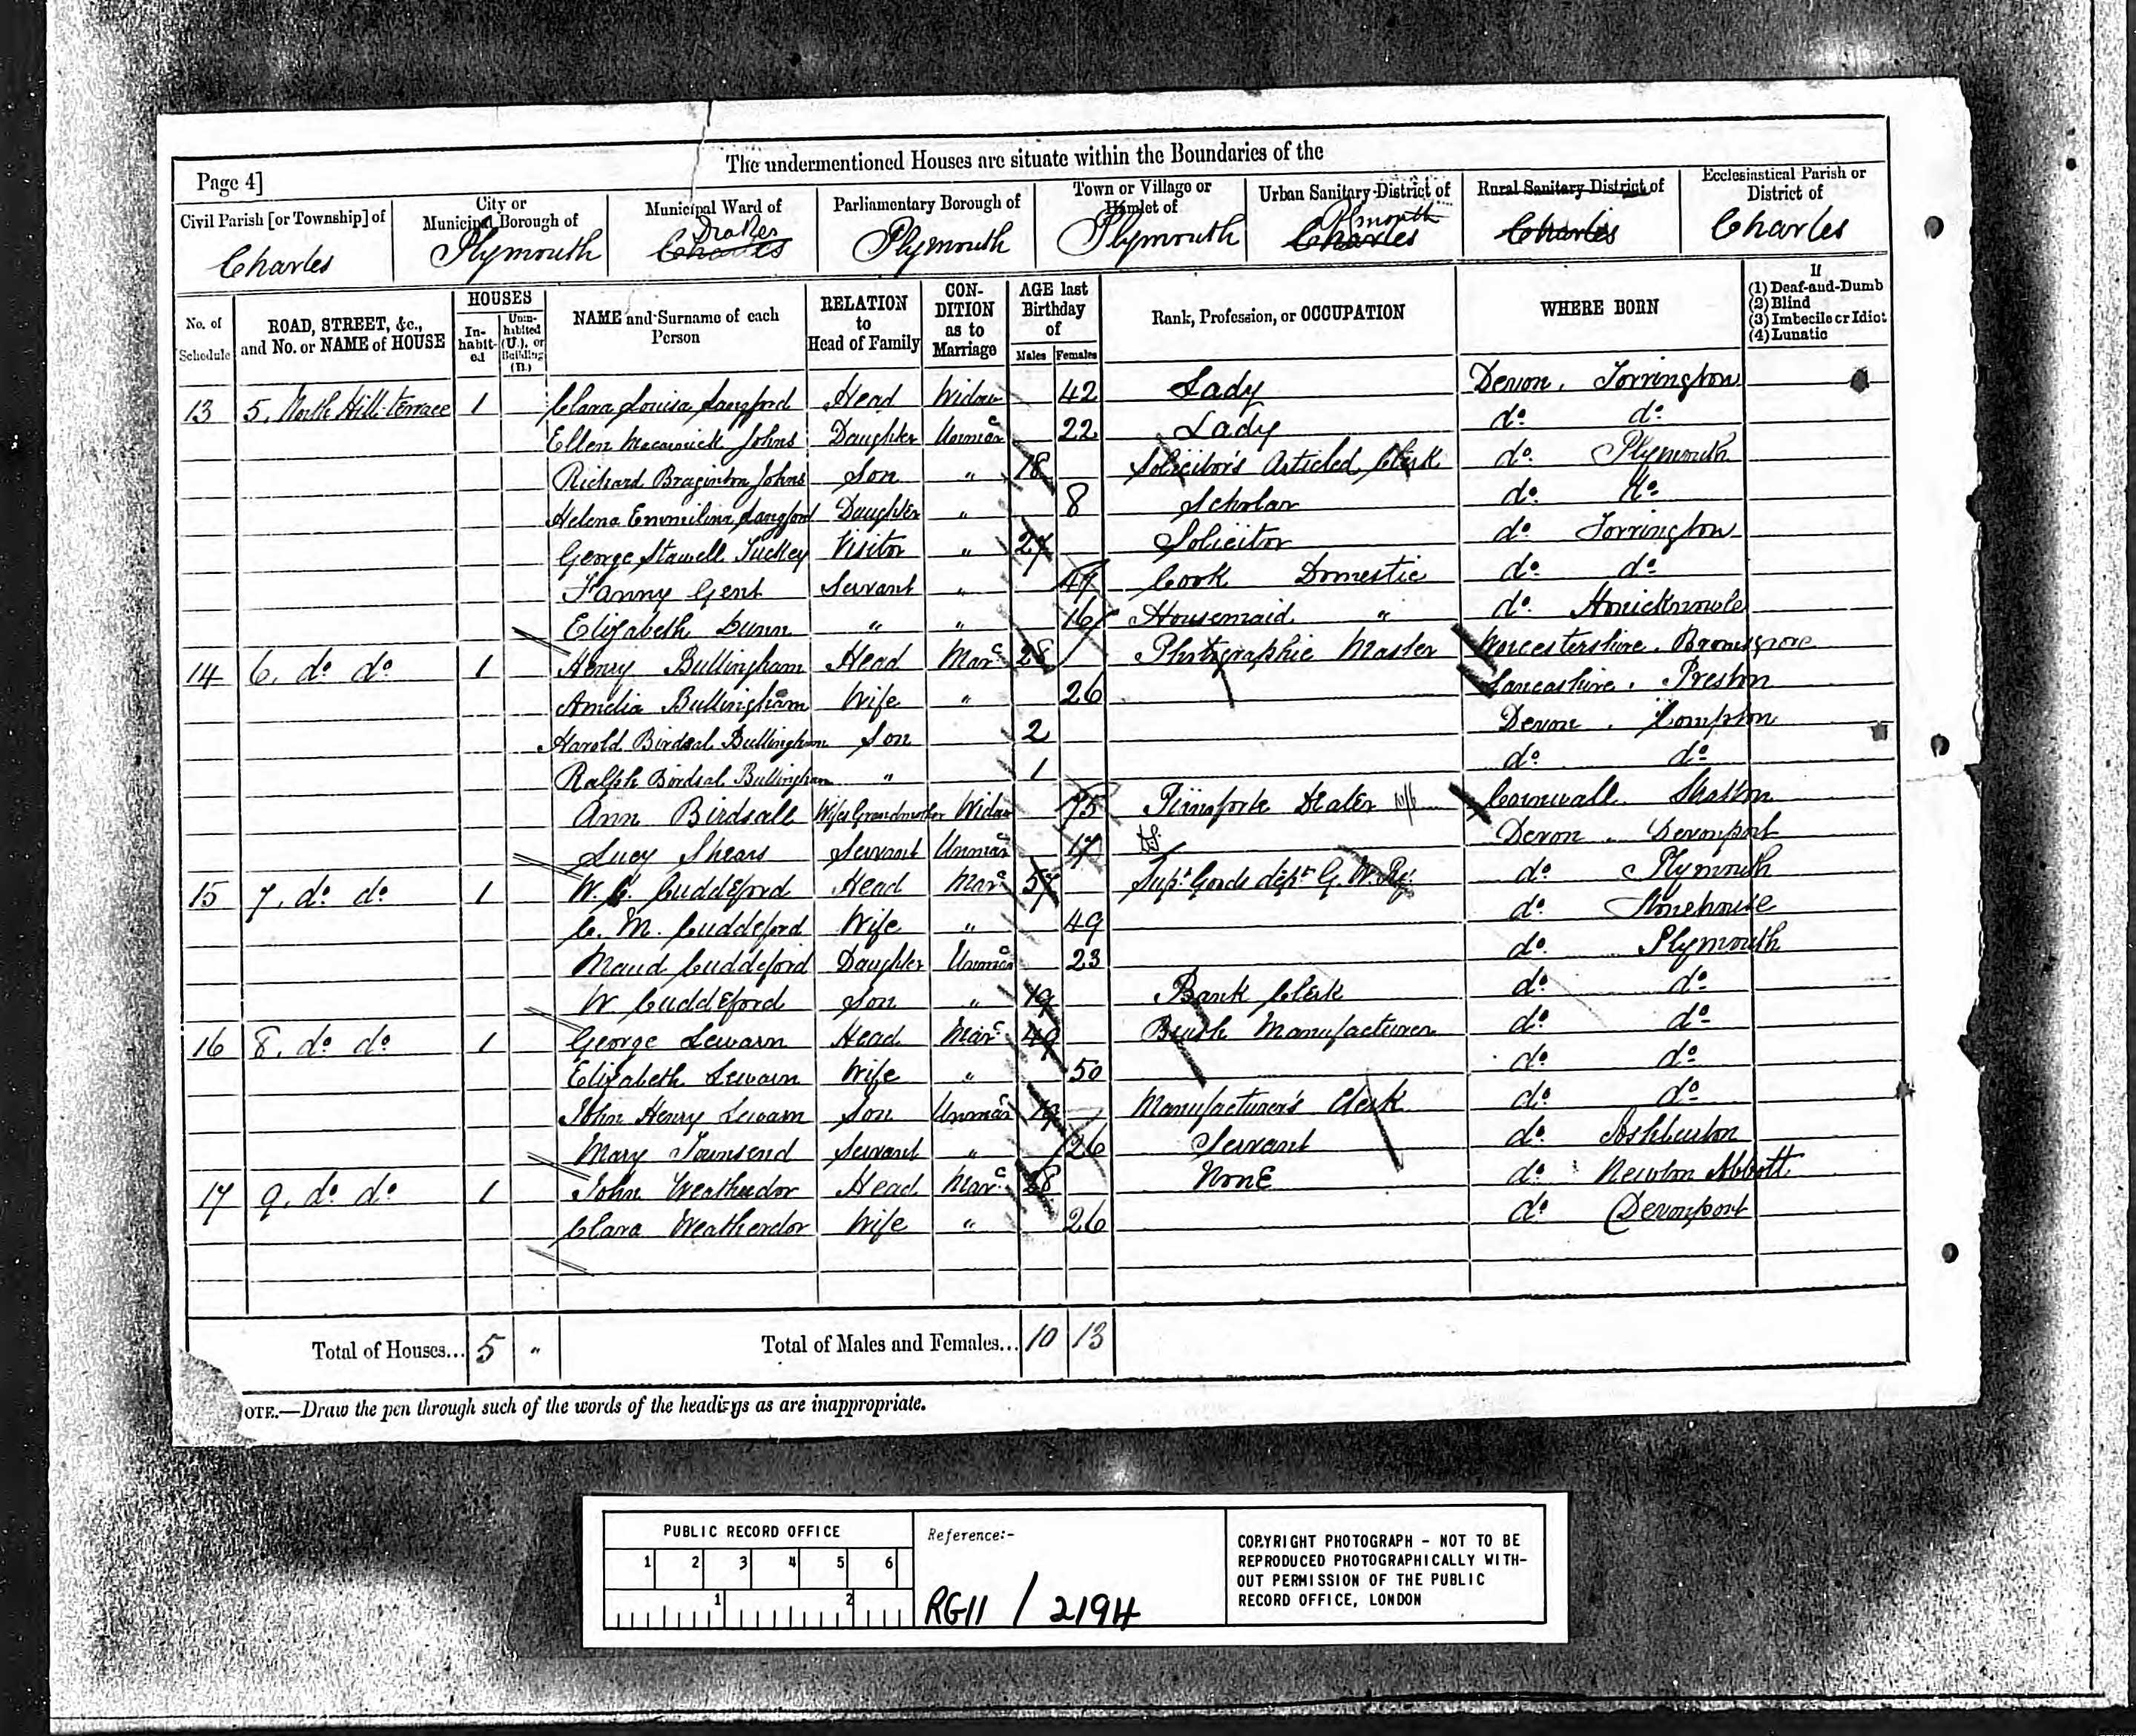 The undermentioned Houses are situate within the Boundaries of the
Page 4]
Civil Parish [or Township] of
Charles
City or Municipal Borough of
Plymouth
Municipal Ward of
Drakes
Charles
Parliamentary Borough of
Plymouth
Town or Village or Hamlet of
Plymouth
Urban Sanitary District of
Plymouth
Charles
Rural Sanitary District of
Charles
Ecclesiastical Parish or District of
Charles
No. of Schedule
ROAD, STREET, &c., and No. or NAME of HOUSE
HOUSES
In-habit-ed
Unin-habited (U.), or Building (B.)
NAME and Surname of each Person
RELATION to Head of Family
CON-DITION as to Marriage
AGE last Birthday of
Males Females
Rank, Profession, or OCCUPATION
WHERE BORN
If
(1) Deaf-and-Dumb
(2) Blind
(3) Imbecile or Idiot
(4) Lunatic
13 5, North Hill Terrace 1 Clara Louisa Langford Head Widow 42 Lady Devon. Torrington
Ellen Johns Daughter Unmar 22 Lady do. do.
Richard Braginton Johns Son " 18 Solicitor's Articled Clerk do. Plymouth
Helena Emmiline Langford Daughter " 8 Scholar do. do.
George Stawell Tuckey Visitor " 27 Solicitor do. Torrington
Fanny Gent Servant " 47 Cook Domestic do. do.
Elizabeth Dunn " " 16 Housemaid " do.
14 6, do. do. 1 Henry Bullingham Head Mar. 28 Photographic Master Worcestershire. Bromsgrove
Amelia Bullingham Wife " 26 Lancashire. Preston
Harold Birdsal Bullingham Son 2 Devon. Compton
Ralph Birdsal Bullingham " 1 do. do.
Ann Birdsall Wifes Grandmother Widow 75 Pianoforte Dealer Cornwall Stratton
Lucy Shears Servant Unmar 17 Devon. Devonport
15 7, do. do. 1 W. C. Cuddeford Head Mar. 57 Supt. Goods dept. G. W. Ry. do. Plymouth
C. M. Cuddeford Wife " 49 do. Stonehouse
Maud Cuddeford Daughter Unmar 23 do. Plymouth
W. Cuddeford Son " 19 Bank Clerk do. do.
16 8, do. do. 1 George Lewarn Head Mar. 49 Brush Manufacturer do. do.
Elizabeth Lewarn Wife " 50 do. do.
John Henry Lewarn Son Unmar 19 Manufacturer's Clerk do. do.
Mary Townsend Servant " 26 Servant do. Ashburton
17 9, do. do. 1 John Weatherdor Head Mar. 28 None do. Newton Abbott
Clara Weatherdor Wife " 26 do. Devonport
Total of Houses... 5 " Total of Males and Females... 10 13
OTE.—Draw the pen through such of the words of the headings as are inappropriate.
PUBLIC RECORD OFFICE
1 2 3 4 5 6
1 2
Reference:-
RG11 / 2194
COPYRIGHT PHOTOGRAPH - NOT TO BE
REPRODUCED PHOTOGRAPHICALLY WITH-
OUT PERMISSION OF THE PUBLIC
RECORD OFFICE, LONDON